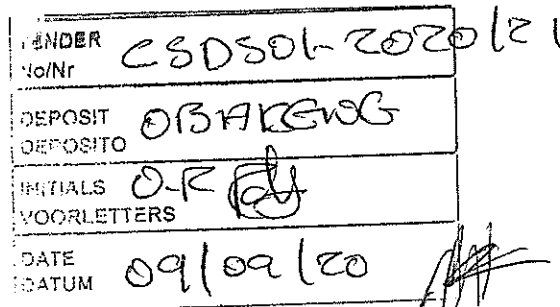 TENDER No/Nr CSDS01-2020/21
DEPOSIT DEPOSITO OBAKENG
INITIALS VOORLETTERS O.R
DATE DATUM 09/09/20